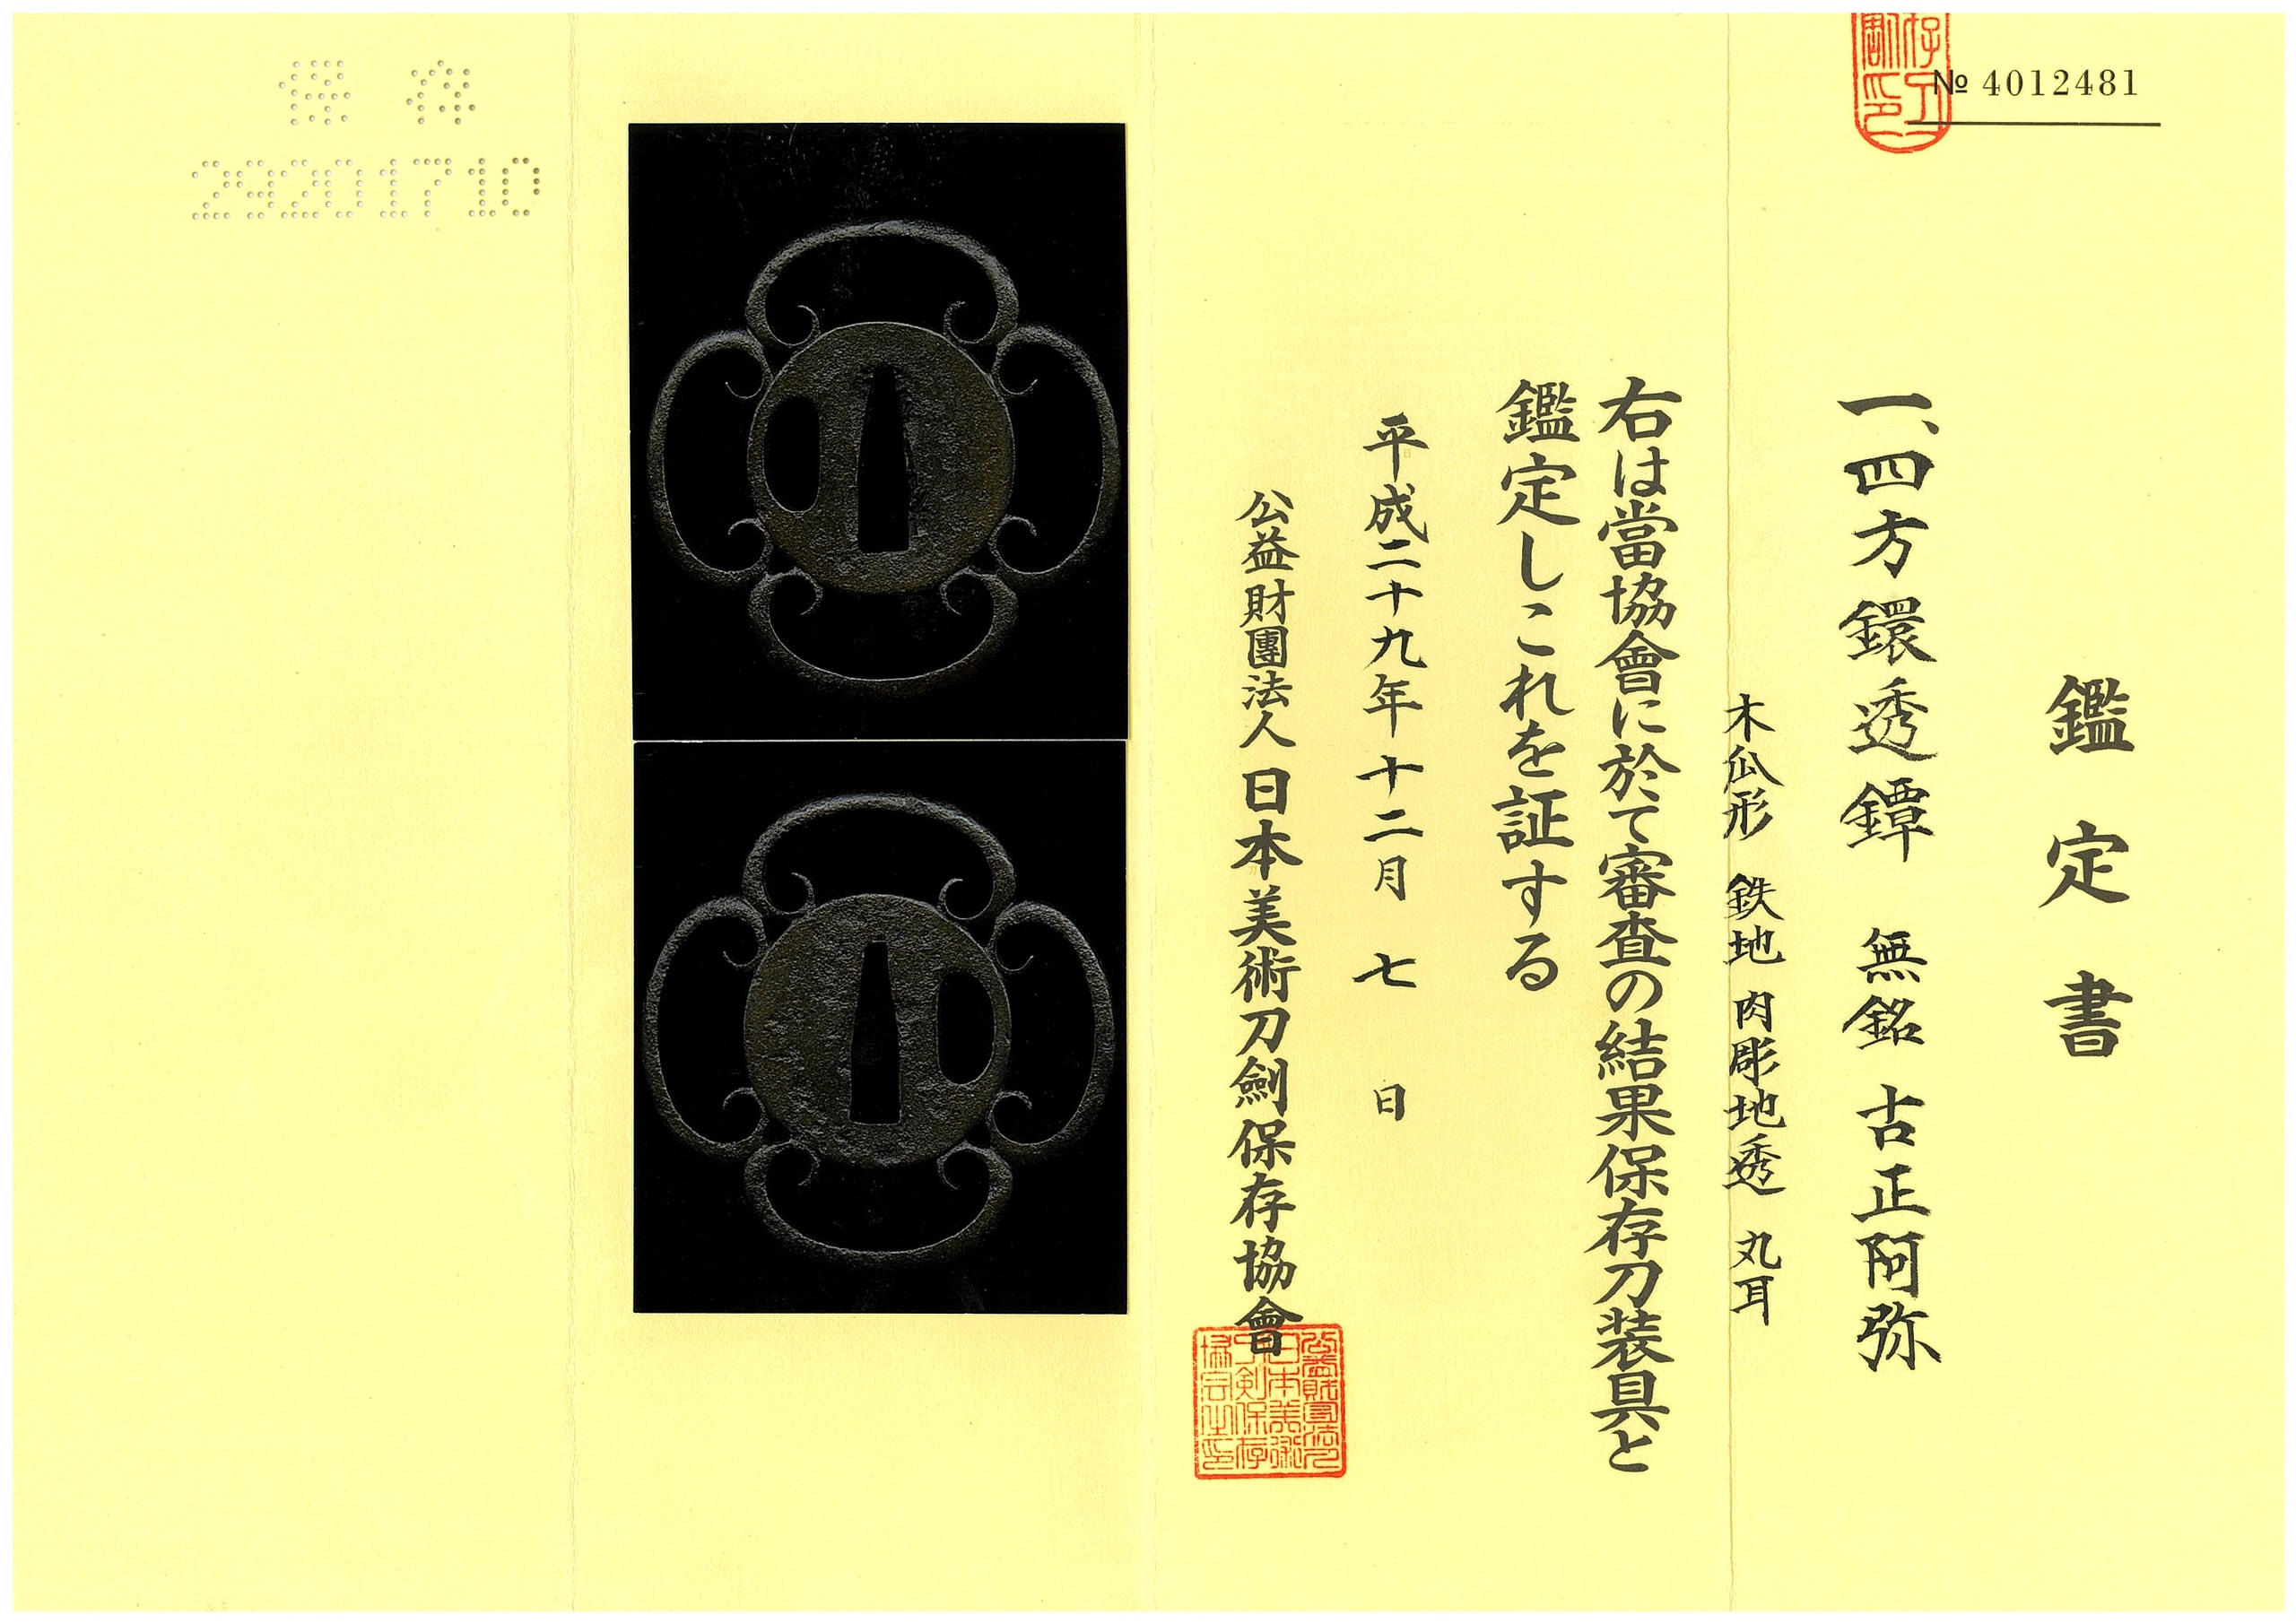 № 4012481
鑑定書
一、四方鐶透鐔 無銘 古正阿弥
木瓜形 鉄地 肉彫地透 丸耳
右は當協會に於て審査の結果保存刀装具と
鑑定しこれを証する
平成二十九年十二月七日
公益財團法人 日本美術刀劍保存協會
保存
29201710